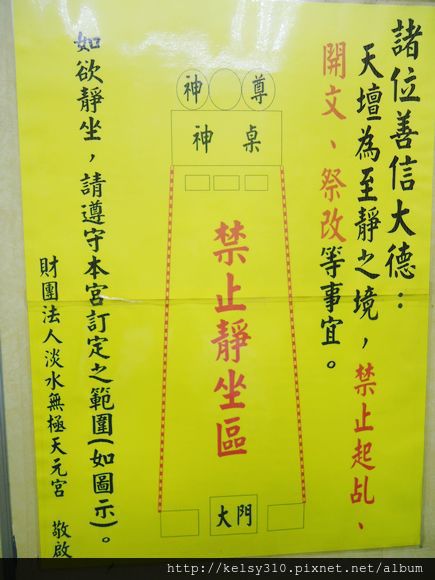 諸位善信大德：
天壇為至靜之境，禁止起乩、
開文、祭改等事宜。
神 尊
神桌
禁止靜坐區
大門
如欲靜坐，請遵守本宮訂定之範圍(如圖示)。
財團法人淡水無極天元宮 敬啟
http://kelsy310.pixnet.net/album